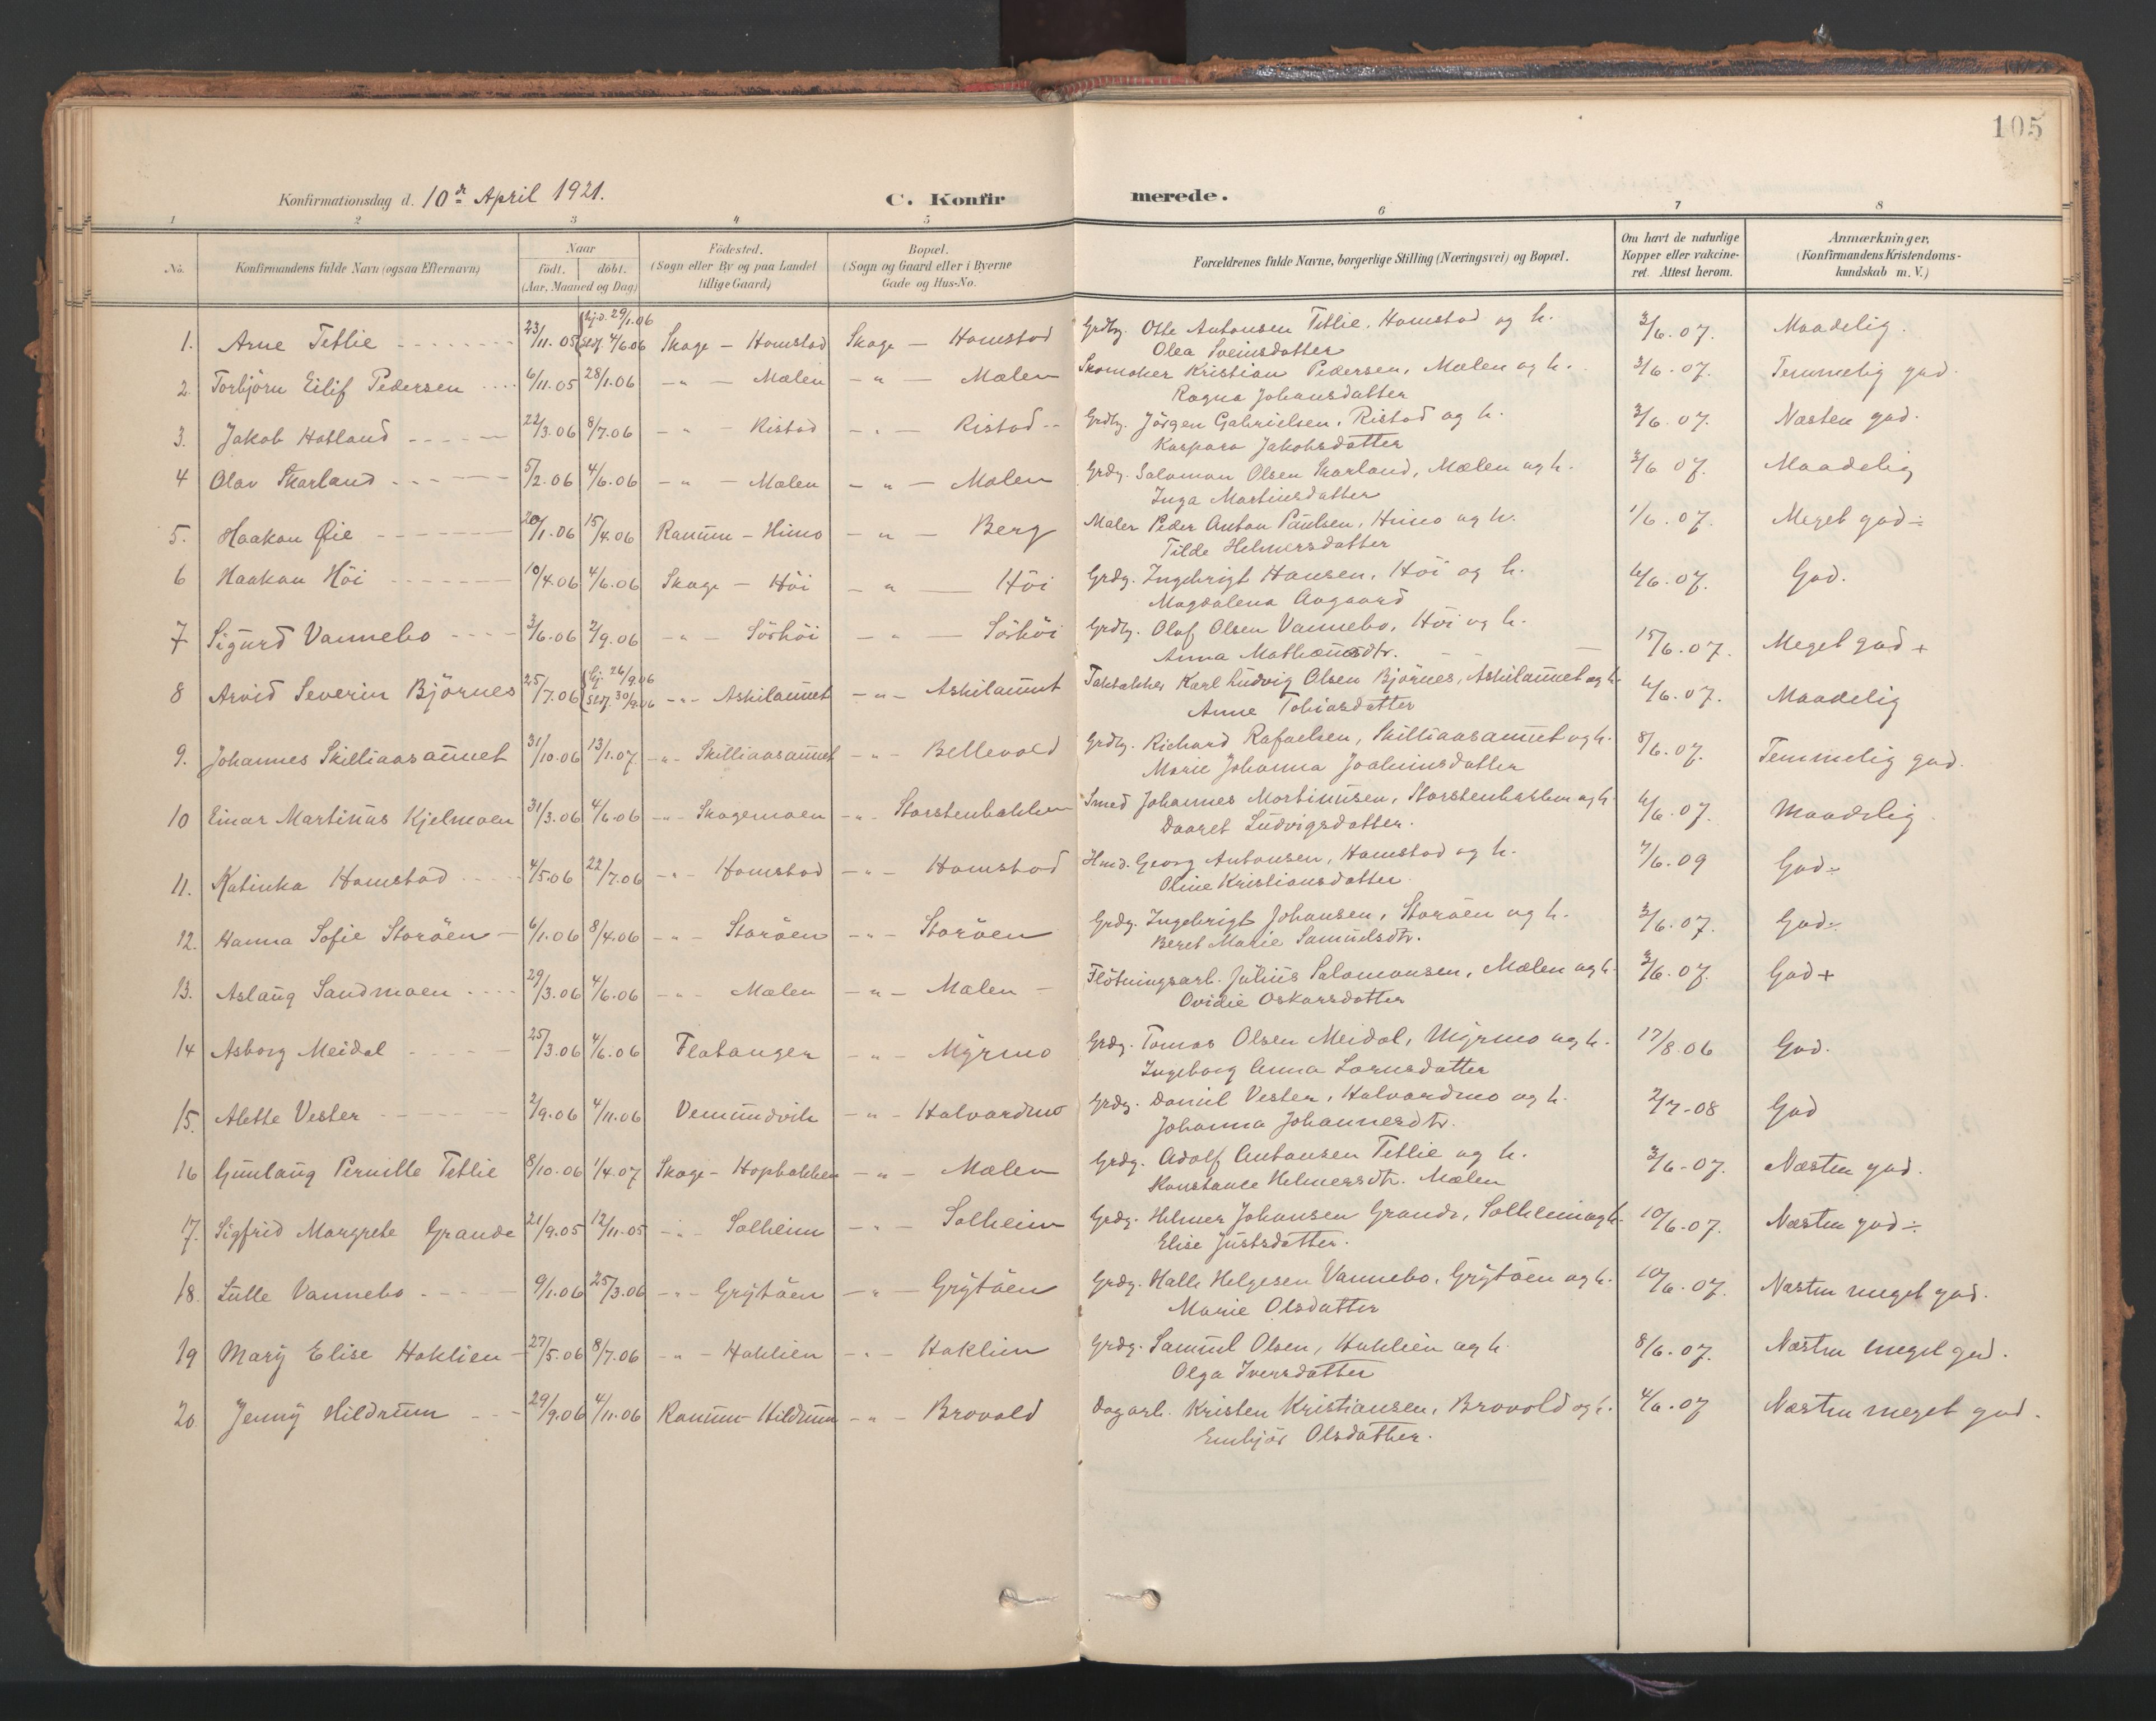 105
Konfirmationsdag d. 10de April 1921.
C. Konfirmerede.
1 2 3 4 5 6 7 8
No. Konfirmandens fulde Navn (ogsaa Efternavn) Naar født. døbt. (Aar, Maaned og Dag) Fødested. (Sogn eller By og paa Landet tillige Gaard) Bopæl. (Sogn og Gaard eller i Byerne Gade og Hus-No. Forældrenes fulde Navne, borgerlige Stilling (Næringsvei) og Bopæl. Om havt de naturlige Kopper eller vakcineret. Attest herom. Anmærkninger, (Konfirmandens Kristendomskundskab m. V.)
1. Arne Tetlie 23/11.05 {Hj.d. 29/1.06 St.f. 4/6.06 Skage — Homstad Skage — Homstad Grdbr. Otte Antonsen Tetlie, Homstad og h. 3/6.07. Maadelig.
Olea Sveinsdatter
2. Torbjörn Eilif Pedersen 6/11.05 28/1.06 -"- — Mælen -"- — Mælen Skomaker Kristian Pedersen, Mælen og h. 3/6.07. Temmelig god.
Ragna Johansdatter
3. Jakob Hatland 22/3.06 8/7.06 -"- — Ristad -"- — Ristad Grdbr. Jörgen Gabrielsen, Ristad og h. 3/6.07. Næsten god.
Kaspara Jakobsdatter
4 Olav Skarland 5/2.06 4/6.06 -"- — Mælen -"- — Mælen Grdbr. Salomon Olsen Skarland, Mælen og h. 3/6 07. Maadelig
Inga Martinsdatter
5. Haakon Øie 20/1.06 15/4.06 Ranum — Himo -"- — Berg Maler Peder Anton Paulsen, Himo og h. 1/6.07. Meget god ÷
Tilde Helmersdatter
6 Haakon Höi 10/4.06 4/6.06 Skage — Höi -"- — Höi Grdbr. Ingebrigt Hansen, Höi og h. 4/6.07. God.
Magdalena Aagaard
7 Sigurd Vannebo 3/6.06 2/9.06 -"- — Sörhöi -"- — Sörhöi Grdbr. Olaf Olsen Vannebo, Höi og h. 15/6.07. Meget god +
Anna Mathæusdtr.
8 Arvid Severin Björnes 25/7.06 {Hj. 26/9.06 St.f. 30/9.06 -"- Askilaunet -"- Askilaunet Taktækker Karl Ludvig Olsen Björnes, Askilaunet og h. 4/6.07. Maadelig
Anne Tobiasdatter
9. Johannes Skilliaasaunet 31/10.06 13/1.07 -"- Skilliaasaunet -"- Bellevold Grdbr. Richard Rafaelsen, Skilliaasaunet og h. 8/6.07. Temmelig god.
Marie Johanna Joakimsdatter
10 Einar Martinus Kjelmoen 31/3.06 4/6.06 -"- Skagemoen -"- Storstenbakken Smed Johannes Martinusen, Storstenbakken og h. 4/6.07. Maadelig
Daaret Ludvigsdatter.
11. Katinka Homstad 4/5.06 22/7.06 -"- Homstad -"- Homstad Hmd. Georg Antonsen, Homstad og h. 7/6.09 God ÷
Oline Kristiansdatter
12. Hanna Sofie Storöen 6/1.06 8/4.06 -"- Storöen -"- Storöen Grdbr. Ingebrigt Johansen, Storöen og h. 3/6.07. God ÷
Beret Marie Samuelsdtr.
13. Aslaug Sandmoen 29/3.06 4/6.06 -"- Mælen -"- Mælen Flötningsarb. Julius Salomonsen, Mælen og h. 3/6.07. God +
Ovidie Oskarsdatter
14 Asborg Meidal 25/3.06 4/6.06 Flatanger -"- Myrmo Grdbr. Tomas Olsen Meidal, Myrmo og h. 17/8.06 God.
Ingeborg Anna Lornsdatter
15. Alette Vester 2/9.06 4/11.06 Vemundvik -"- Halvardmo Grdbr. Daniel Vester, Halvardmo og h. 2/7-08 God
Johanna Johannesdtr.
16 Gunlaug Pernille Tetlie 8/10.06 1/4.07 Skage — Hopbakken -"- Mælen Grdbr. Adolf Antonsen Tetlie og h. 3/6-07. Næsten god.
Konstance Helmersdtr. Mælen
17. Sigfrid Margrete Grande 21/9.05 12/11.05 -"- Solheim -"- Solheim Grdbr. Helmer Johansen Grande, Solheim og h. 10/6.07. Næsten god ÷
Elise Justsdatter.
18. Lulle Vannebo 9/1.06 25/3.06 -"- Grytöen -"- Grytöen Grdbr. Halle Helgesen Vannebo, Grytöen og h. 10/6.07. Næsten meget god.
Marie Olsdatter
19 Mary Elise Haklien 27/5.06 8/7.06 -"- Haklien -"- Haklien Grdbr. Samuel Olsen, Haklien og h. 8/6.07. Næsten meget god.
Olga Iversdatter
20 Jenny Hildrum 29/9.06 4/11.06 Ranum Hildrum -"- Brovold Dagarb. Kristen Kristiansen, Brovold og h. 4/6.07 Næsten meget god.
Embjör Olsdatter.